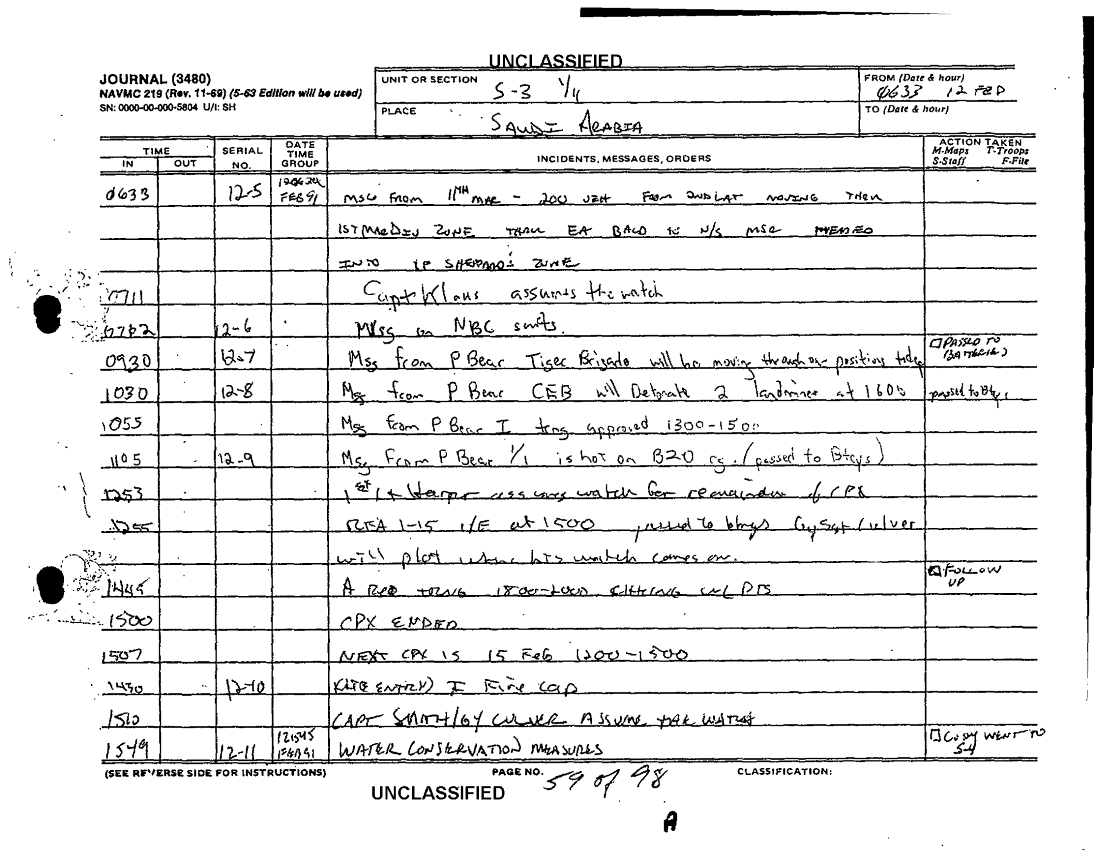 UNCLASSIFIED
JOURNAL (3480)
NAVMC 219 (Rev. 11-69) (5-63 Edition will be used)
SN: 0000-00-000-5804 U/I: SH
UNIT OR SECTION
S-3 1/11
FROM (Date & hour)
0633 12 FEB
PLACE
SAUDI ARABIA
TO (Date & hour)
TIME
IN OUT
SERIAL NO.
DATE TIME GROUP
INCIDENTS, MESSAGES, ORDERS
ACTION TAKEN
M-Maps T-Troops
S-Staff F-File
0633 12-5 FEB 91 MSG FROM 11TH MAR - 200 VEH FROM 2ND LAT MOVING THRU
1ST MARDIV ZONE THRU EA BALD TO N/S MSR
INTO TF SHEPARD'S ZONE
0711 Capt Klaus assumes the watch
12-6 Msg on NBC suits.
0930 12-7 Msg from P Bear Tiger Brigade will be moving through our positions today PASSED TO BATTERIES
1030 12-8 Msg from P Bear CEB will Detonate 2 landmines at 1600 passed to Btys
1055 Msg from P Bear I trng approved 1300-1500
1105 12-9 Msg From P Bear 1/1 is hot on B20 rg. (passed to Btrys)
1253 1st Lt Harper assumes watch for remainder of CPX
1255 RFA 1-15 I/E at 1500 passed to btrys GySgt Culver
will plot when his watch comes on.
1445 A REQ TRNG 1800-2000 W/ FOLLOW UP
1500 CPX ENDED
1507 NEXT CPX IS 15 Feb 1200-1500
1430 12-10 (LATE ENTRY) I Fire Cap
1510 CAPT SMITH/GY CULVER ASSUME THE WATCH
1549 12-11 121545 FEB91 WATER CONSERVATION MEASURES COPY WENT TO S-4
(SEE REVERSE SIDE FOR INSTRUCTIONS)
PAGE NO. 59 of 98
CLASSIFICATION:
UNCLASSIFIED
A